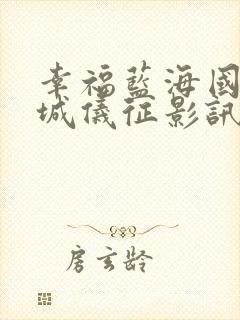 幸福藍海國
城儀征影訊
房玄齡